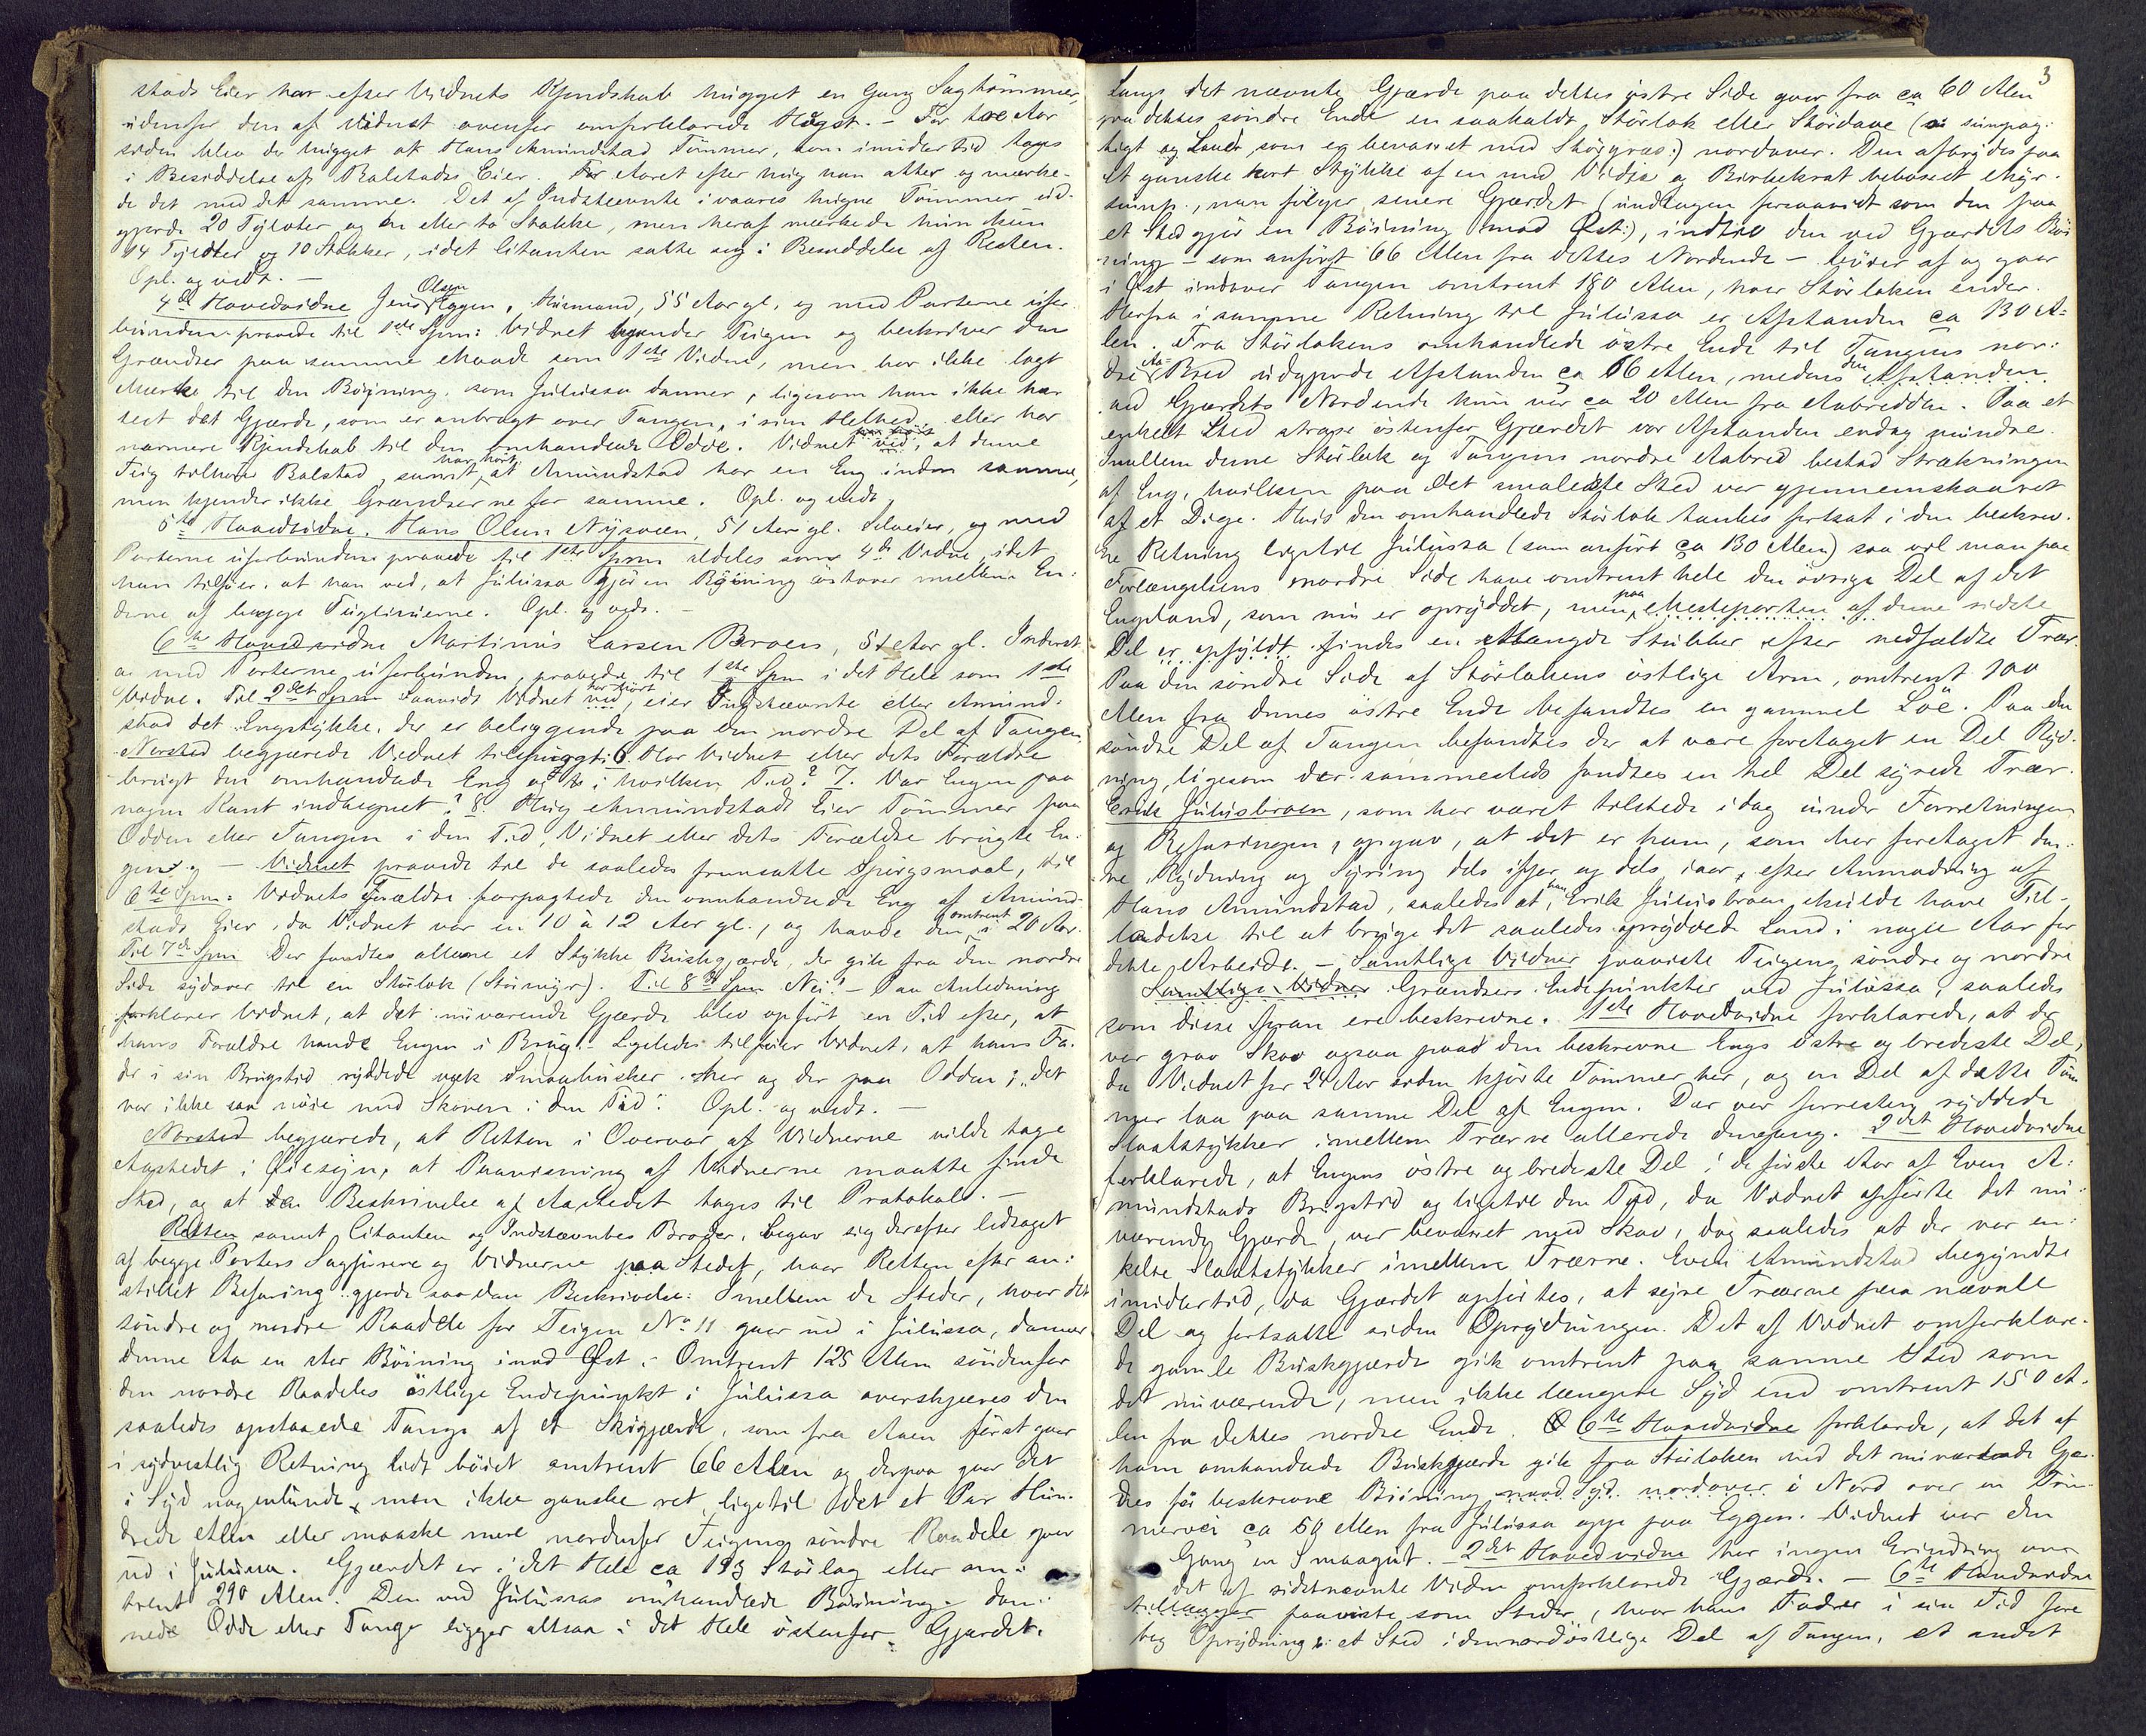 stads Eier har efter Vidnets Kjendskab hugget en Gang Sagtömmer,
udenfor den af Vidnet ovenfor omforklarede Hogst. - For tre Aar
siden blev der hugget af Hans Amundstad Tömmer, som imidlertid toges
i Besiddelse af Balstads Eier. For Aaret efter hug han atter og mærke-
de det med det samme. Det af Indstevnte ivaares hugne Tömmer ud-
gjorde 20 Tylvter og en eller to Stokke, men heraf mærkede hun kun
14 Tylvter og 10 Stokker, idet Citanten satte sig i Besiddelse af Resten.
Opl. og vedt. -
4de Hovedvidne Jens Olsen Eggen, Husmand, 55 Aar gl. og med Parterne ufor-
bunden provede til 1ste Spm: Vidnet kjender Teigen og beskriver dens
Grændser paa samme Maade som 1ste Vidne, men har ikke lagt
Mærke til den Böining, som Julussa danner, ligesom han ikke har
seet det Gjærde, som er anbragt over Tangen, i sin Helhed eller har
nærmere Kjendskab til den omhandlede Odde. Vidnet ved, at denne
Teig tilhörer Balstad, samt har hört at Amundstad har en Eng inden samme,
men kjender ikke Grændserne for samme. Opl. og vedt.
5te Hovedvidne. Hans Olsen Nysveen, 51 Aar gl. Selveier, og med
Parterne uforbunden provede til 1ste Spm aldeles som 4de Vidne, idet
han tilföier, at han ved, at Julussa gjör en Böining östover mellem En-
derne af begge Teiglinierne. Opl. og vedt. -
6te Hovedvidne Martinus Larsen Broen, 51 Aar gl. Inderst
og med Parterne uforbunden, provede til 1ste Spm i det Hele som 1ste
Vidne. Til 2det Spm Saavidt Vidnet har hört, eier Indstævnte eller Amund-
stad det Engstykke, der er beliggende paa den nordre Del af Tangen.
Norsted begjærede Vidnet tilspurgt: 6. Har Vidnet eller dets Forældre
brugt den omhandlede Eng og i hvilken Tid? 7. Var Engen paa
nogen Kant indhegnet? 8. Hug Amundstads Eier Tömmer paa
Odden eller Tangen i den Tid, Vidnet eller dets Forældre brugte En-
gen? - Vidnet provede til de saaledes fremsatte Spörgsmaal, til
6te Spm: Vidnets Forældre forpagtede den omhandlede Eng af Amund-
stads Eier, da Vidnet var en 10 à 12 Aar gl., og havde den i omtrent 20 Aar.
Til 7de Spm Der fandtes alene et Stykke Buskgjærde, der gik fra den nordre
Side sydover til en Störlok (Störmyr). Til 8de Spm Nei! - Paa Anledning
forklarer Vidnet, at det nuværende Gjærde blev opfört en Tid efter, at
hans Forældre havde Engen i Brug. Ligeledes tilföier Vidnet, at hans Fa-
der i sin Brugstid ryddede væk Smaabusker her og der paa Odden; "det
var ikke saa nöie med Skoven i den Tid". Opl. og vedt. -
Norsted begjærede, at Retten i Overvær af Vidnerne vilde tage
Aastedet i Öiesyn, at Paavisning af Vidnerne maatte finde
Sted, og at en Beskrivelse af Aastedet tages til Protokols. -
Retten samt Citanten og Indstævntes Broder, begav sig derefter ledsaget
af begge Parters Sagförere og Vidnerne paa Stedet, hvor Retten efter an-
stillet Befaring gjorde saadan Beskrivelse: Imellem de Steder, hvor det
söndre og nordre Raadele for Teigen No 11 gaar ud i Julussa, danner
denne Aa en stor Böining imod Öst. Omtrent 125 Alen söndenfor
den nordre Raadeles östlige Endepunkt i Julussa overskjæres den
saaledes opstaaede Tange af et Skigjærde, som fra Aaen först gaar
i sydvestlig Retning lidt böiet omtrent 66 Alen og derpaa gaar det
i Syd nogenlunde, men ikke ganske ret, ligetil det et Par Hun-
drede Alen eller maaske mere nordenfor Teigens söndre Raadele gaar
ud i Julussa. Gjærdet er i det Hele ca 193 Störlag eller om-
trent 290 Alen. Den ved Julussas omhandlede Böining dan-
nede Odde eller Tange ligger altsaa i det Hele östenfor Gjærdet.
3
Langs det nævnte Gjærde paa dettes östre Side gaar fra ca 60 Alen
fra dettes söndre Ende en saakaldt Störlok eller Stördove (: sumpag-
tigt og Lændt som er bevoxet med Störgræs:) nordover. Den afbrydes paa
et ganske kort Stykke af en med Vidje og Birkekrat bevoxet Myr-
sump, men fölger senere Gjærdet (undtagen forsaavidt som den paa
et Sted gjör en Böining mod Öst:), indtil den ved Gjærdets Böi-
ning - som anfört 66 Alen fra dettes Nordende - böier af og gaar
i Öst indover Tangen omtrent 180 Alen, hvor Störloken ender.
Herfra i samme Retning til Julussa er Afstanden ca 130 A-
len. Fra Störlokens omhandlede östre Ende til Tangens nor-
dre Aa-Bred udgjorde Afstanden ca 66 Alen, medens den Afstanden
ved Gjærdets Nordende kun var ca 20 Alen fra Aabredden. Paa et
enkelt Sted strax östenfor Gjærdet var Afstanden endog mindre.
Imellem denne Störlok og Tangens nordre Aabred bestod Strækningen
af Eng, hvilken paa det smaleste Sted var gjennemskaaret
af et Dige. Hvis den omhandlede Störlok tænkes fortsat i den beskrev-
ne Retning ligetil Julussa (som anfört ca 130 Alen) saa vil man paa
Forlængelsens nordre Side have omtrent hele den övrige Del af det
Engeland, som nu er opryddet, men paa Mesteparten af denne sidste
Del er opfyldt findes en Mængde Stubber efter nedfældte Trær.
Paa den söndre Side af Störlokens östlige Arm, omtrent 100
Alen fra dennes östre Ende befandtes en gammel Löe. Paa den
söndre Del af Tangen befandtes der at være foretaget en Del Ryd-
ning, ligesom der sammesteds fandtes en hel Del syrede Trær.
Erik Julusbroen, som har været tilstede idag under Forretningen
og Befaringen, opgav, at det er ham, som har foretaget den-
ne Rydning og Syring dels ifjor og dels iaar, efter Anmodning af
Hans Amundstad, saaledes at han, Erik Julusbroen skulde have Til-
ladelse til at bruge det saaledes opryddede Land i nogle Aar for
dette Arbeide. - Samtlige Vidner paaviste Teigens söndre og nordre
Samtlige Vidner Grændsers Endepunkter ved Julussa, saaledes
som disse foran ere beskrevne. 1ste Hovedvidne forklarede, at der
var grov Skov ogsaa paa den beskrevne Engs östre og bredeste Del,
da Vidnet for 24 Aar siden kjörte Tömmer her, og en Del af dette Töm-
mer laa paa samme Del af Engen. Der var forresten ryddede
Slaatstykker imellem Trærne allerede dengang. 2det Hovedvidne
forklarede, at Engens östre og bredeste Del i de förste Aar af Even A-
mundstads Brugstid og ligetil den Tid, da Vidnet opförte det nu-
værende Gjærde, var bevoxet med Skov, dog saaledes at der var en-
kelte Slaatstykker imellem Trærne. Even Amundstad begyndte
imidlertid, da Gjærdet opförtes, at syre Trærne paa nævnte
Del og fortsatte siden Oprydningen. Det af Vidnet omforklare-
de gamle Buskgjærde gik omtrent paa samme Sted som
det nuværende, men ikke længere Syd end omtrent 150 A-
len fra dettes nordre Ende. 6te Hovedvidne forklarede, at det af
ham omhandlede Buskgjærde gik fra Störloken ved det nuværende Gjær-
des för beskrevne Böining mod Syd nordover i Nord over en Töm-
mervei ca 50 Alen fra Julussa oppe paa Eggen. Vidnet var den
Gang en Smaagut. - 2det Hovedvidne har ingen Erindring om
det af sidstnævnte Vidne omforklarede Gjærde. - 6te Hovedvidne
tillægger paaviste som Steder, hvor hans Fader i sin Tid fore-
tog Oprydning: et Sted i den nordöstlige Del af Tangen, et andet